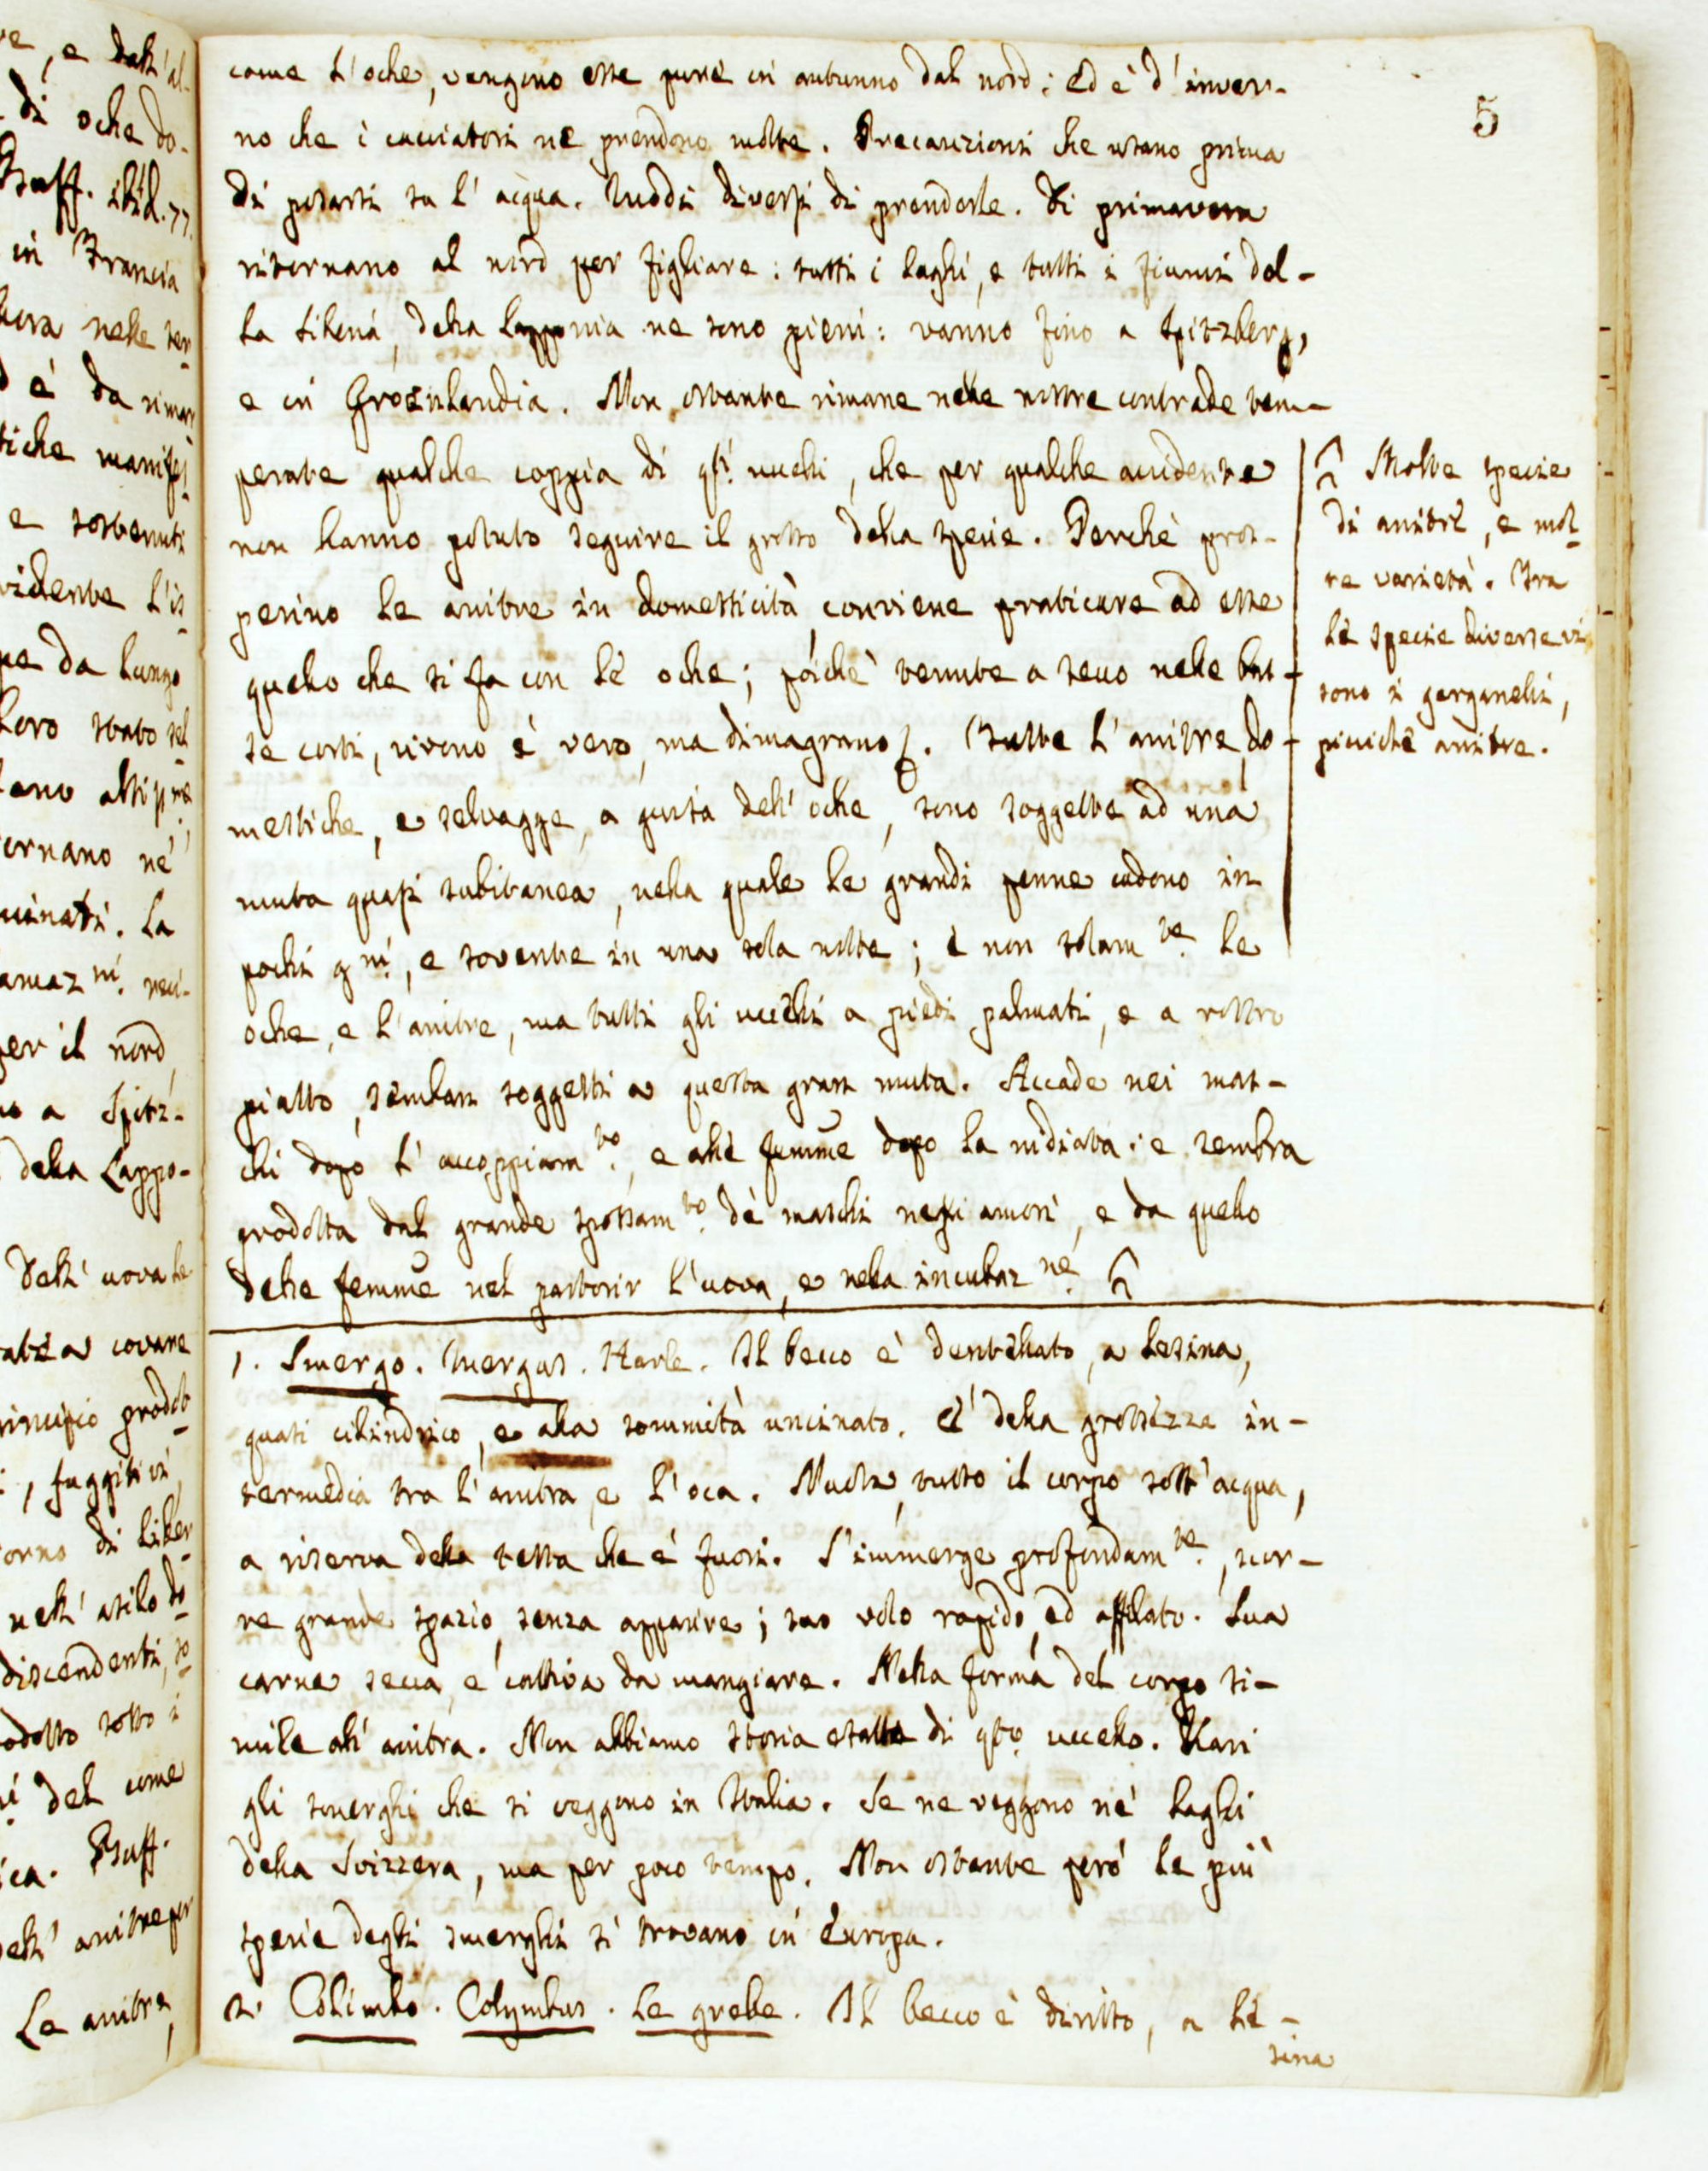 5
come l'oche, vengono esse pure in autunno dal nord: ed è d'inver-
no che i cacciatori ne prendono molte. Precauzioni che usano prima
di posarsi su l'acqua. Modi diversi di prenderle. Di primavera
ritornano al nord per figliare: tutti i laghi, e tutti i fiumi del-
la Siberia, della Lapponia ne sono pieni: vanno fino a Spitzberg,
e in Groenlandia. Non ostante rimane nelle nostre contrade tem-
perate qualche coppia di qsti uccelli, che per qualche accidente
non hanno potuto seguire il grosso della specie. Perchè pros-
perino le anitre in domesticità conviene praticare ad esse
quello che si fa con le oche; poichè tenute a secco nelle bas-
se corti, vivono è vero, ma dimagrano. Tutte l'anitre do-
mestiche, e selvagge, a guisa dell'oche, sono soggette ad una
muta quasi subitanea, nella quale le grandi penne cadono in
pochi gni, e sovente in una sola notte; e non solamte le
oche, e l'anitre, ma tutti gli uccelli a piedi palmati, e a rostro
piatto, sembran soggetti a questa gran muta. Accade nei mas-
chi dopo l'accoppiamto, e alle femme dopo la nidiata: e sembra
prodotta dal grande spossamto de maschi negli amori, e da quello
delle femme nel partorir l'uova, e nella incubazne
Molte specie
di anitre, e mol
te varietà. Tra
le specie diverse vi
sono i garganelli,
piccole anitre.
1. Smergo. Mergus. Harle. Il becco è dentellato, a lesina,
quasi cilindrico, e alla sommità uncinato. E' della grossezza in-
termedia tra l'anitra, e l'oca. Nuota, tutto il corpo sott'acqua,
a riserva della testa che è fuori. S'immerge profondamte, scor-
re grande spazio senza apparire; suo volo rapido, ed affilato. Sua
carne secca, e cattiva da mangiare. Nella forma del corpo si-
mile all'anitra. Non abbiamo storia esatta di qsto uccello. Rari
gli smerghi che si veggono in Italia. Se ne veggono ne' laghi
della Svizzera, ma per poco tempo. Non ostante però le più
specie degli smerghi si trovano in Europa.
2. Colimbo. Colymbus. Le grebe. Il becco è diritto, a le-
sina